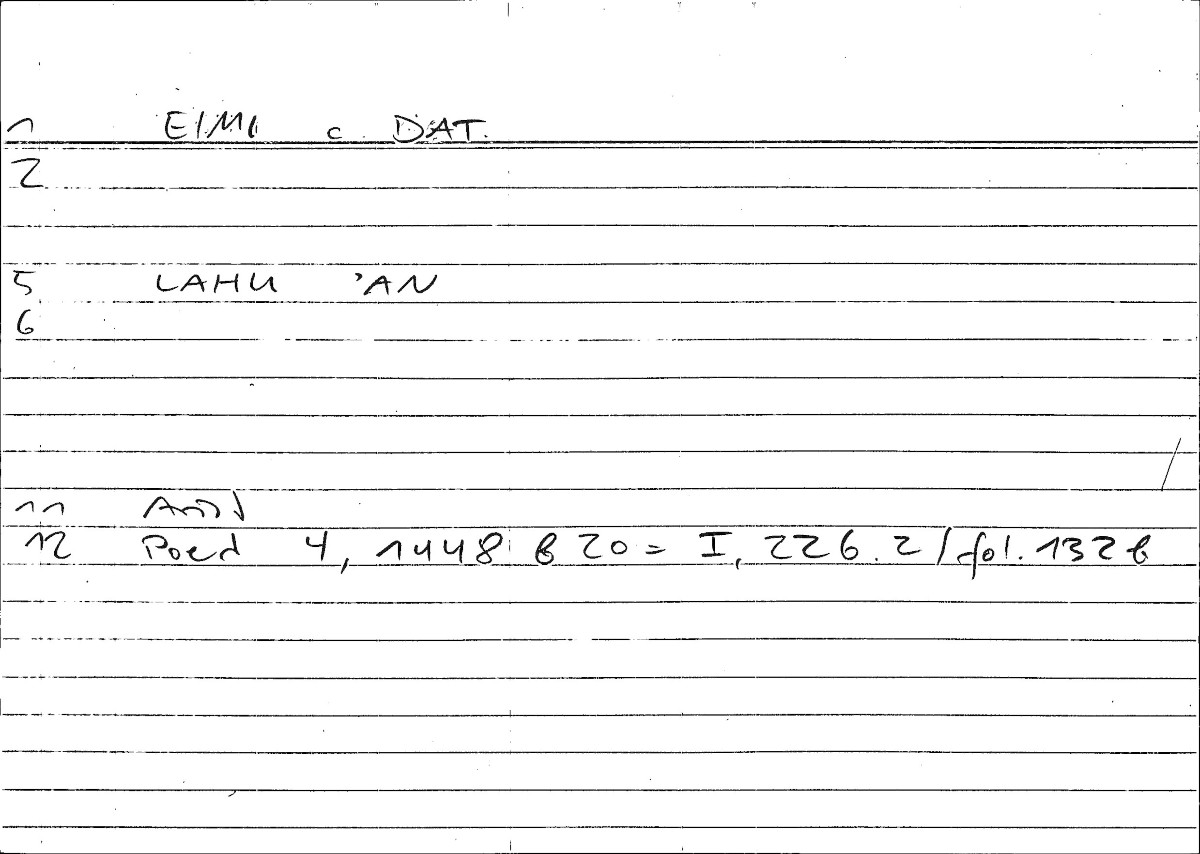 1 EIMI c. DAT.
2
5 LAHU 'AN
6
11
12 Poed 4, 1448 b 20 = I, 226.2 / fol. 132 b